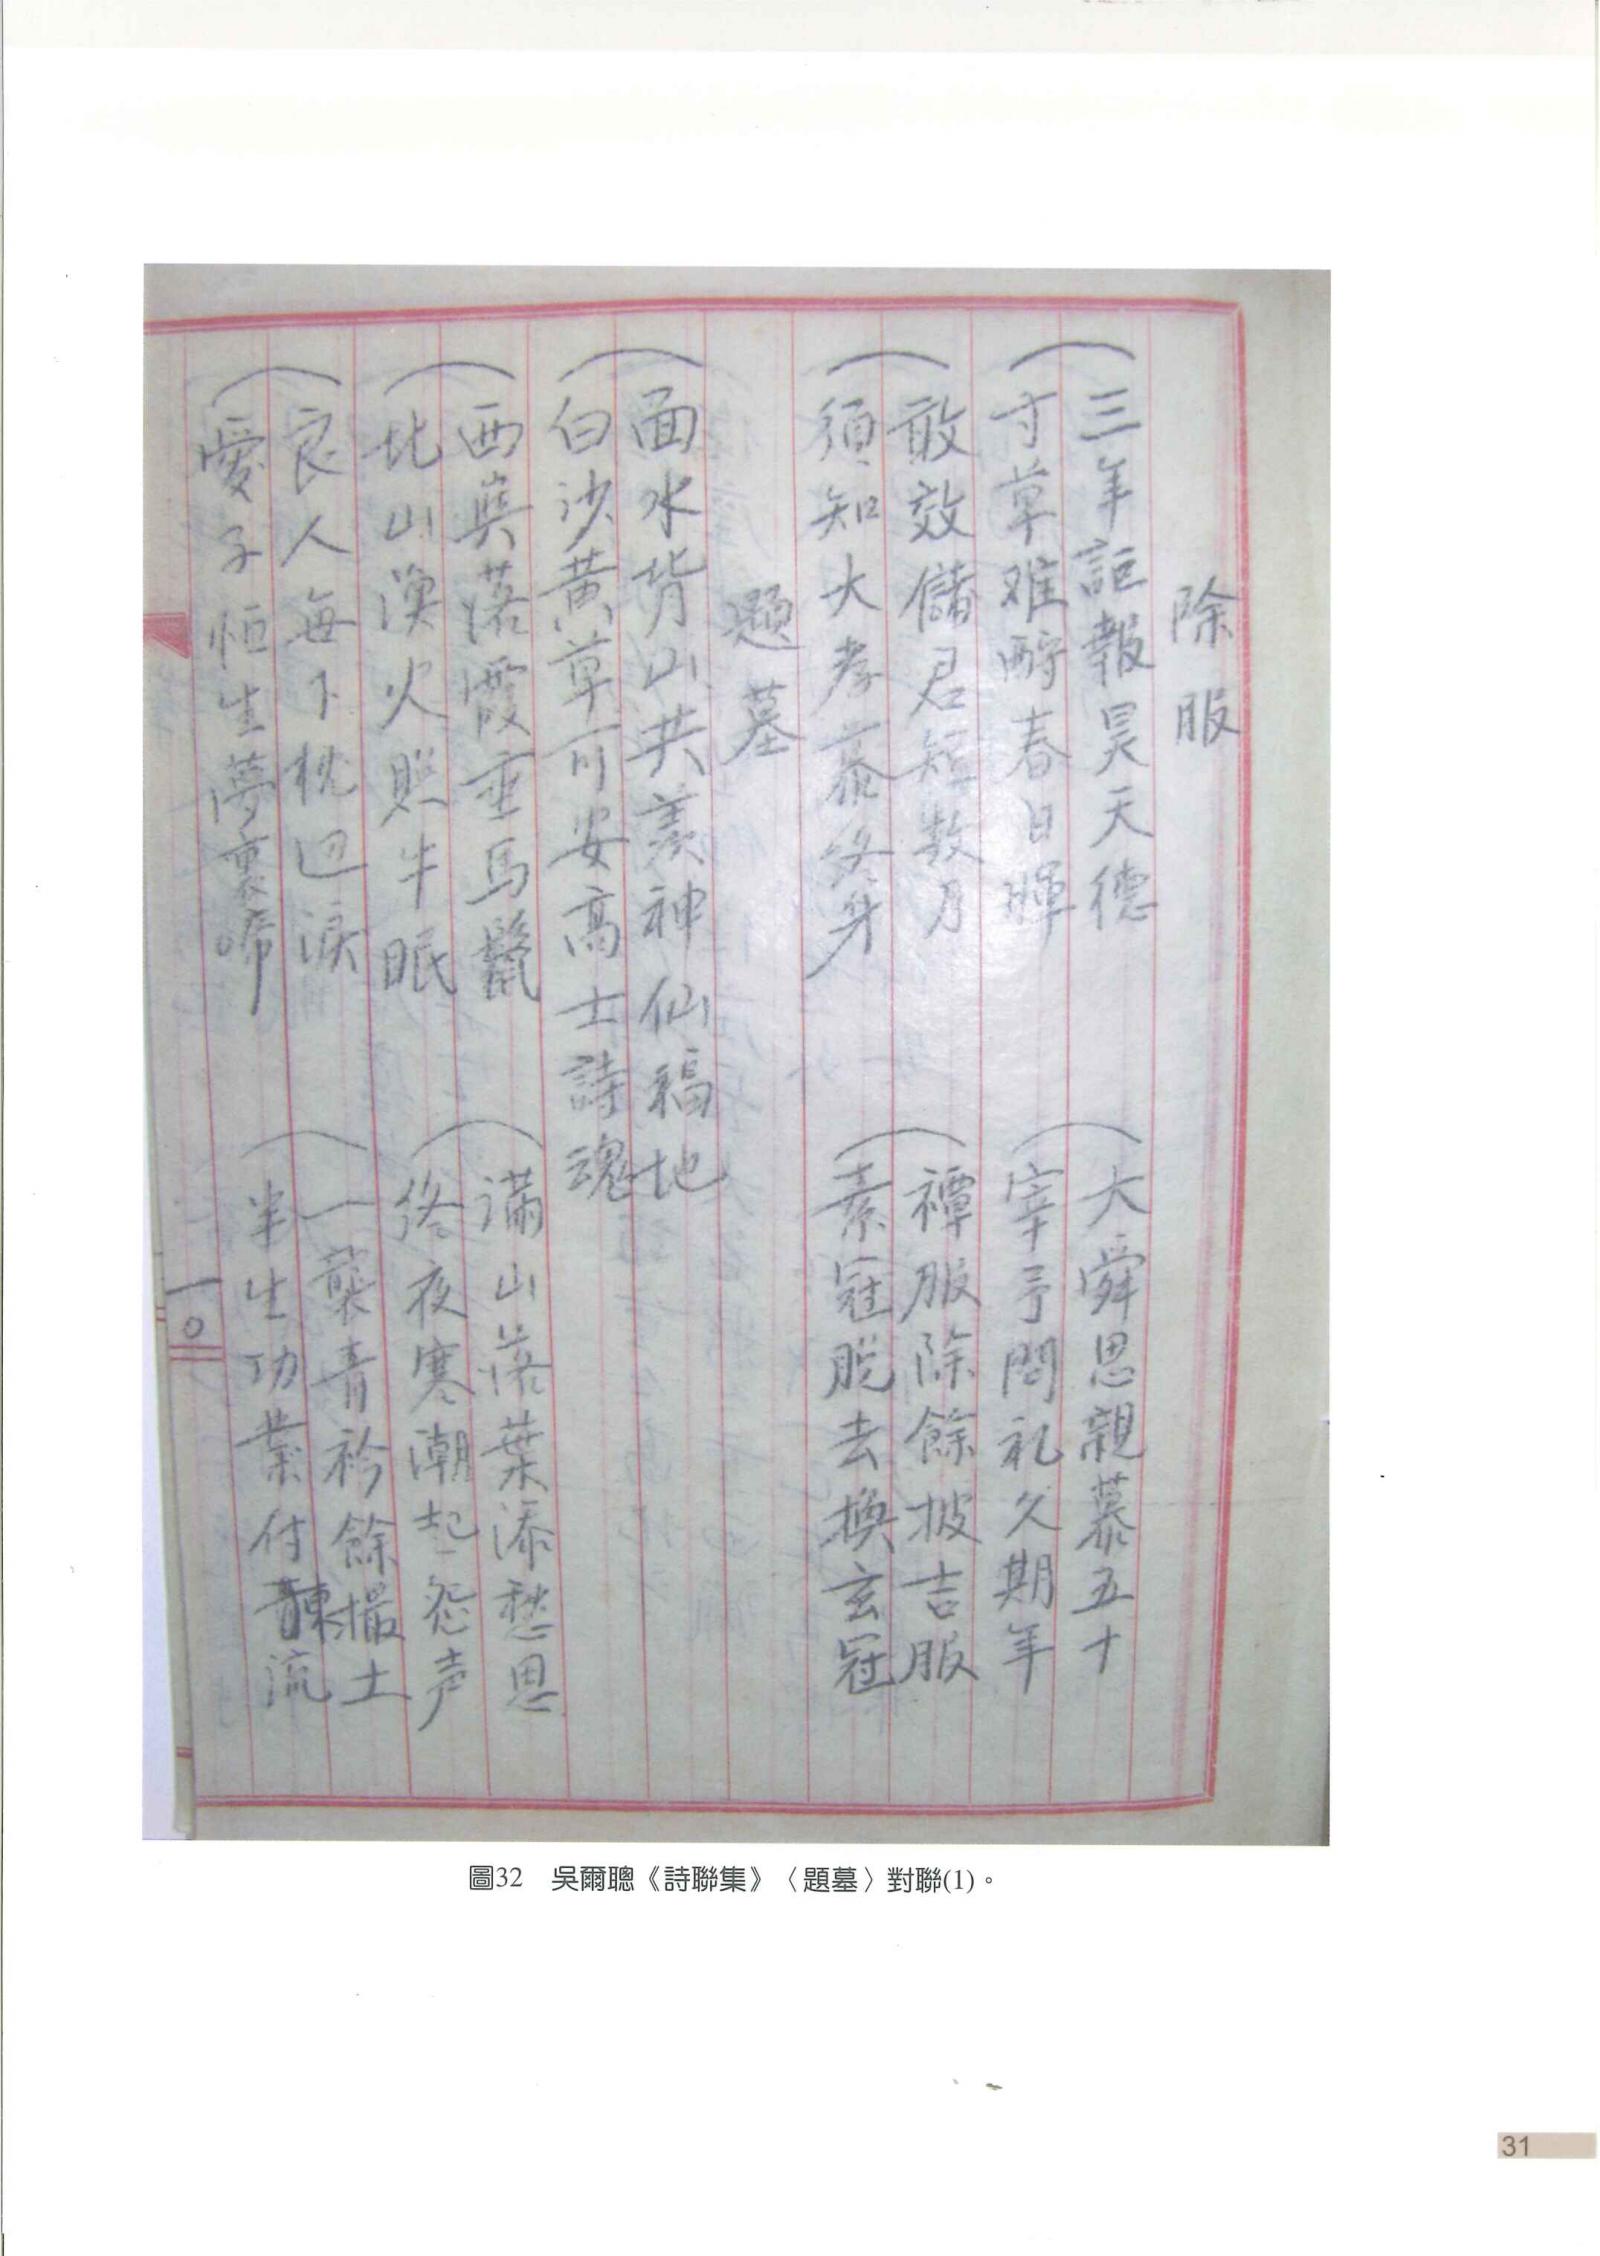 除服
三年詎報昊天德
寸草难酧春日暉
大舜思親慕五十
宰予問礼久期年
敢效儲君短数月
須知大孝慕終身
禫服除餘披吉服
素冠脱去換玄冠
題墓
面水背山共羨神仙福地
白沙黃草可安高士詩魂
西嶼落霞垂馬鬣
北山漁火照牛眠
滿山落葉添愁思
終夜寒潮起怨声
良人每下枕辺淚
愛子恒生夢裏啼
一襲青衿餘撮土
半生功業付東流
一〇
圖32　吳爾聰《詩聯集》〈題墓〉對聯(1)。
31